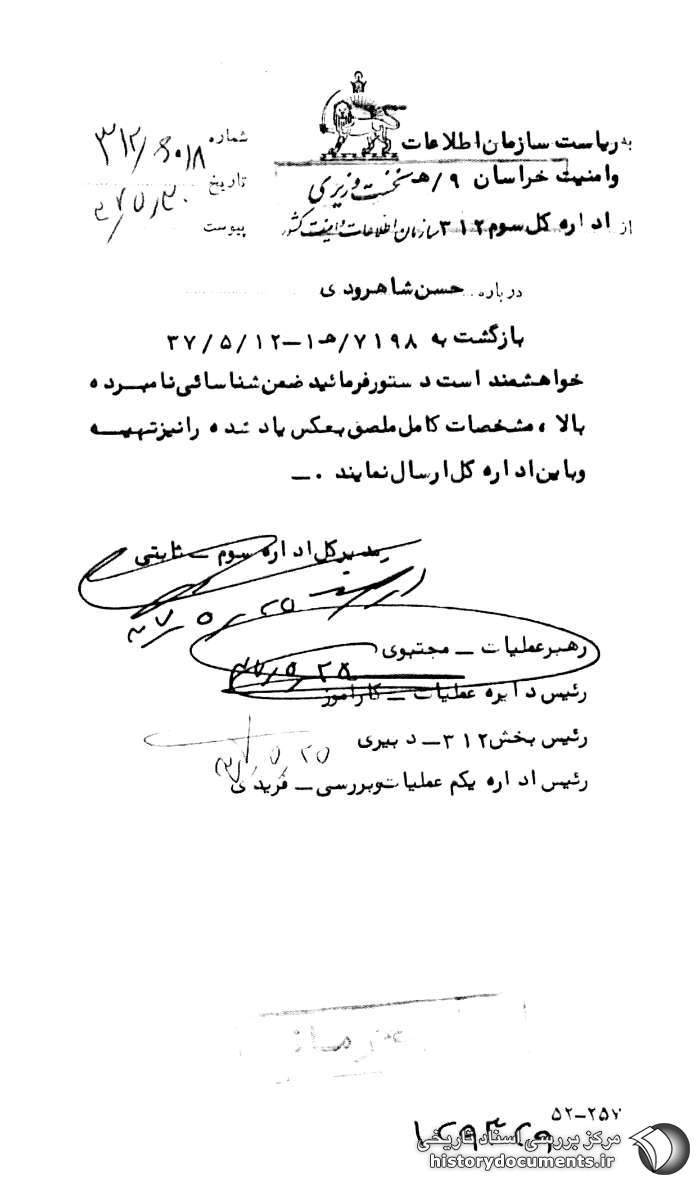 به ریاست سازمان اطلاعات
وامنیت خراسان ۹/هـ
نخست وزیری
از اداره کل سوم ۳۱۲
سازمان اطلاعات و امنیت کشور
شماره ۳۱۲/
تاریخ
پیوست
درباره حسن شاهرودی
بازگشت به ۷۱۹۸/هـ۱–۳۷/۵/۱۲
خواهشمند است دستور فرمائید ضمن شناسائی نامبرده
بالا، مشخصات کامل ملصق بعکس یاد شده را نیز تهیه
وباین اداره کل ارسال نمایند .–
مدیرکل اداره سوم – ثابتی
رهبرعملیات – مجتبوی
رئیس دایره عملیات – کارآموز
رئیس بخش ۳۱۲– دبیری
رئیس اداره یکم عملیات وبررسی – فریدی
۵۲–۲۵۷
مرکز بررسی اسناد تاریخی
historydocuments.ir